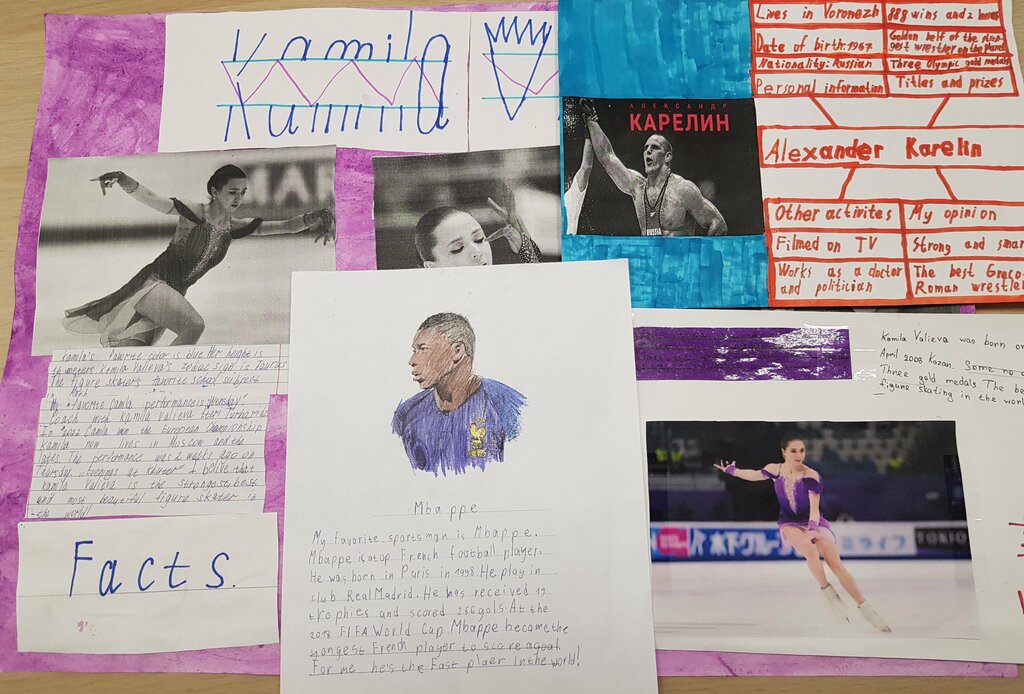 Kamila
Kamila
Lives in Voronezh
888 wins and 2 loses
Date of birth: 1967
Golden belt of the stron-
gest wrestler on the planet
Nationality: Russian
Three Olympic gold medals
Personal information
Titles and prizes
Alexander Karelin
Other activites
My opinion
Filmed on TV
Strong and smar
Works as a doctor
and politician
The best Greco-
Roman wrestler
АЛЕКСАНДР
КАРЕЛИН
RUSSIA
Kamila's favorite color is blue. Her height is
meters. Kamila Valieva's zodiac sign is Taurus
The figure skater's favorite school subject
My favorite Camila performance is
Coach with Kamila Valieva
In 2022 Camila won the European Championship
Kamila now lives in Moscow and the
The performance was 2 weeks ago on
Thursday "Evenings at I belive that
Kamila Valieva is the strongest, best
and most beautiful figure skater in
the world!
Facts.
Mbappe
My favorite sportsman is Mbappe.
Mbappe is a top French football player.
He was born in Paris in 1998. He play in
club Real Madrid. He has received 19
trophies and scored 256 gols. At the
2018 FIFA World Cup Mbappe became the
yongest French player to score a goal
For me he's the East plaer in the world!
Kamila Valieva was born on
April 2006 Kazan. Some no
Three gold medals. The be
figure skating in the worl
木下グループ
ミライフ
TOKIO